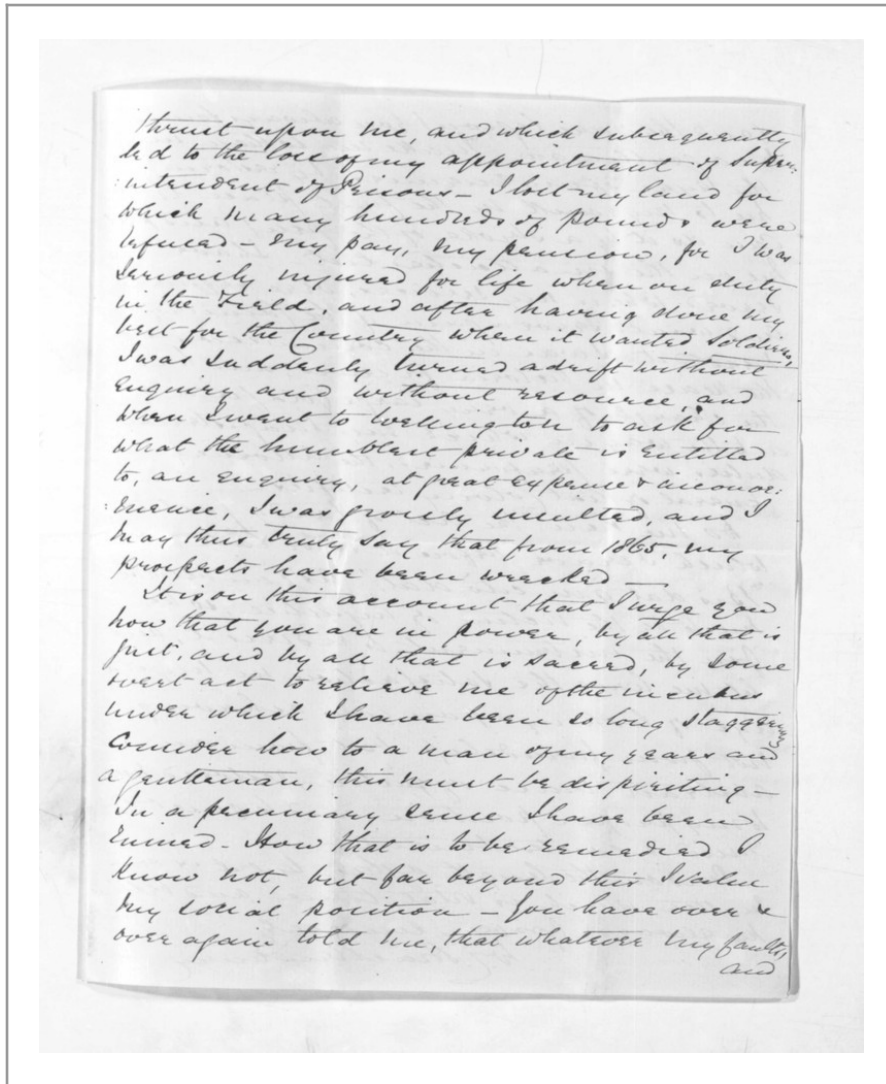 thrust upon me, and which subsequently
led to the loss of my appointment of Super:
:intendent of Prisons – I lost my land for
which many hundreds of pounds were
refused – my pay, my pension, for I was
seriously injured for life when on duty
in the Field, and after having done my
best for the Country when it wanted Soldiers,
I was suddenly turned adrift without
enquiry and without resource, and
when I went to Wellington to ask for
what the humblest private is entitled
to, an enquiry, at great expense & inconve:
:nience, I was grossly insulted, and I
may thus truly say that from 1865, my
prospects have been wrecked –
It is on this account that I urge you
now that you are in power, by all that is
just, and by all that is sacred, by some
overt act to relieve me of the incubus
under which I have been so long staggering
Consider how to a man of my years and
a gentleman, this must be dispiriting –
In a pecuniary sense I have been
ruined – How that is to be remedied I
know not, but far beyond this I value
my social position – You have over &
over again told me, that whatever my faults,
and